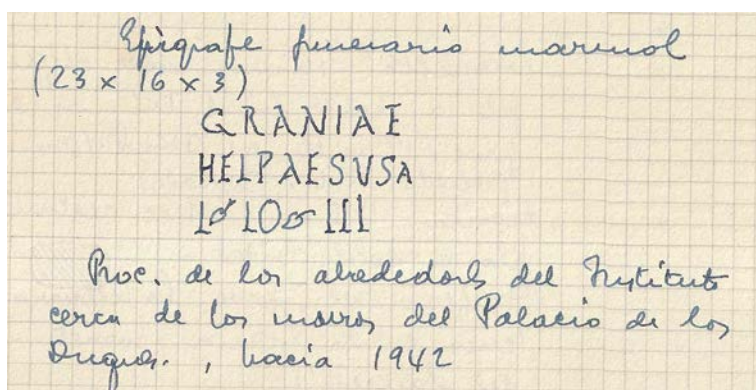 Epígrafe funerario marmol
(23 x 16 x 3)
GRANIAE
HELPAESVSA
L LO III
Proc. de los alrededores del Instituto
cerca de los muros del Palacio de los
Duques., hacia 1942